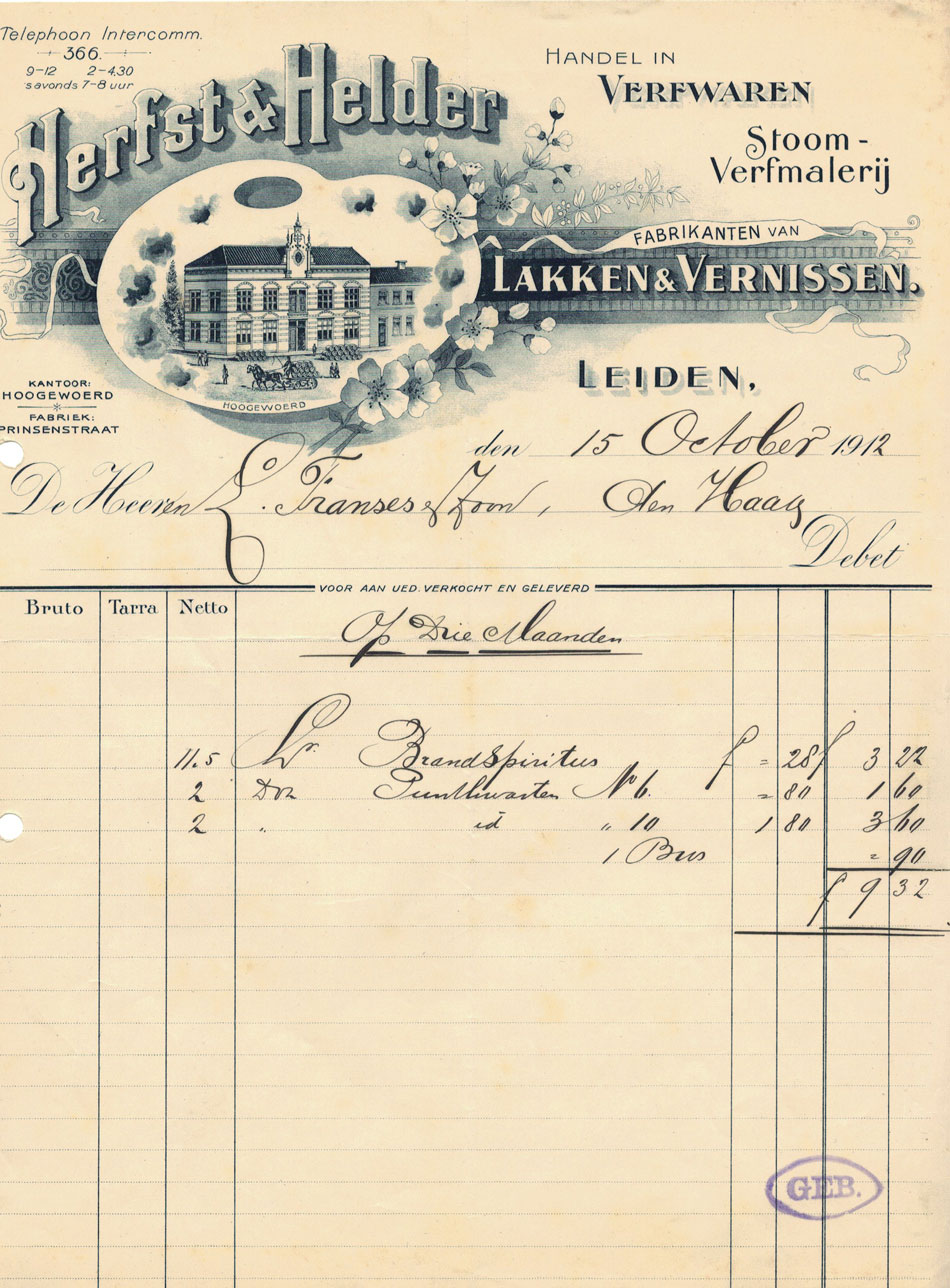 Telephoon Intercomm.
366.
9-12 2-4.30
s avonds 7-8 uur
Herfst & Helder
HANDEL IN
VERFWAREN
Stoom-
Verfmalerij
FABRIKANTEN VAN
LAKKEN & VERNISSEN.
HOOGEWOERD
KANTOOR:
HOOGEWOERD
FABRIEK:
PRINSENSTRAAT
LEIDEN,
den 15 October 1912
De Heeren L. Franses & Zoon, den Haag
Debet
VOOR AAN UED. VERKOCHT EN GELEVERD
Bruto Tarra Netto
Op Drie Maanden
11.5 Lr. Brandspiritus f = 28 f 3 22
2 Doz Punthwasten No 6. = 80 1 60
2 " id " 10 1 80 3 60
1 Bus = 90
f 9 32
GEB.